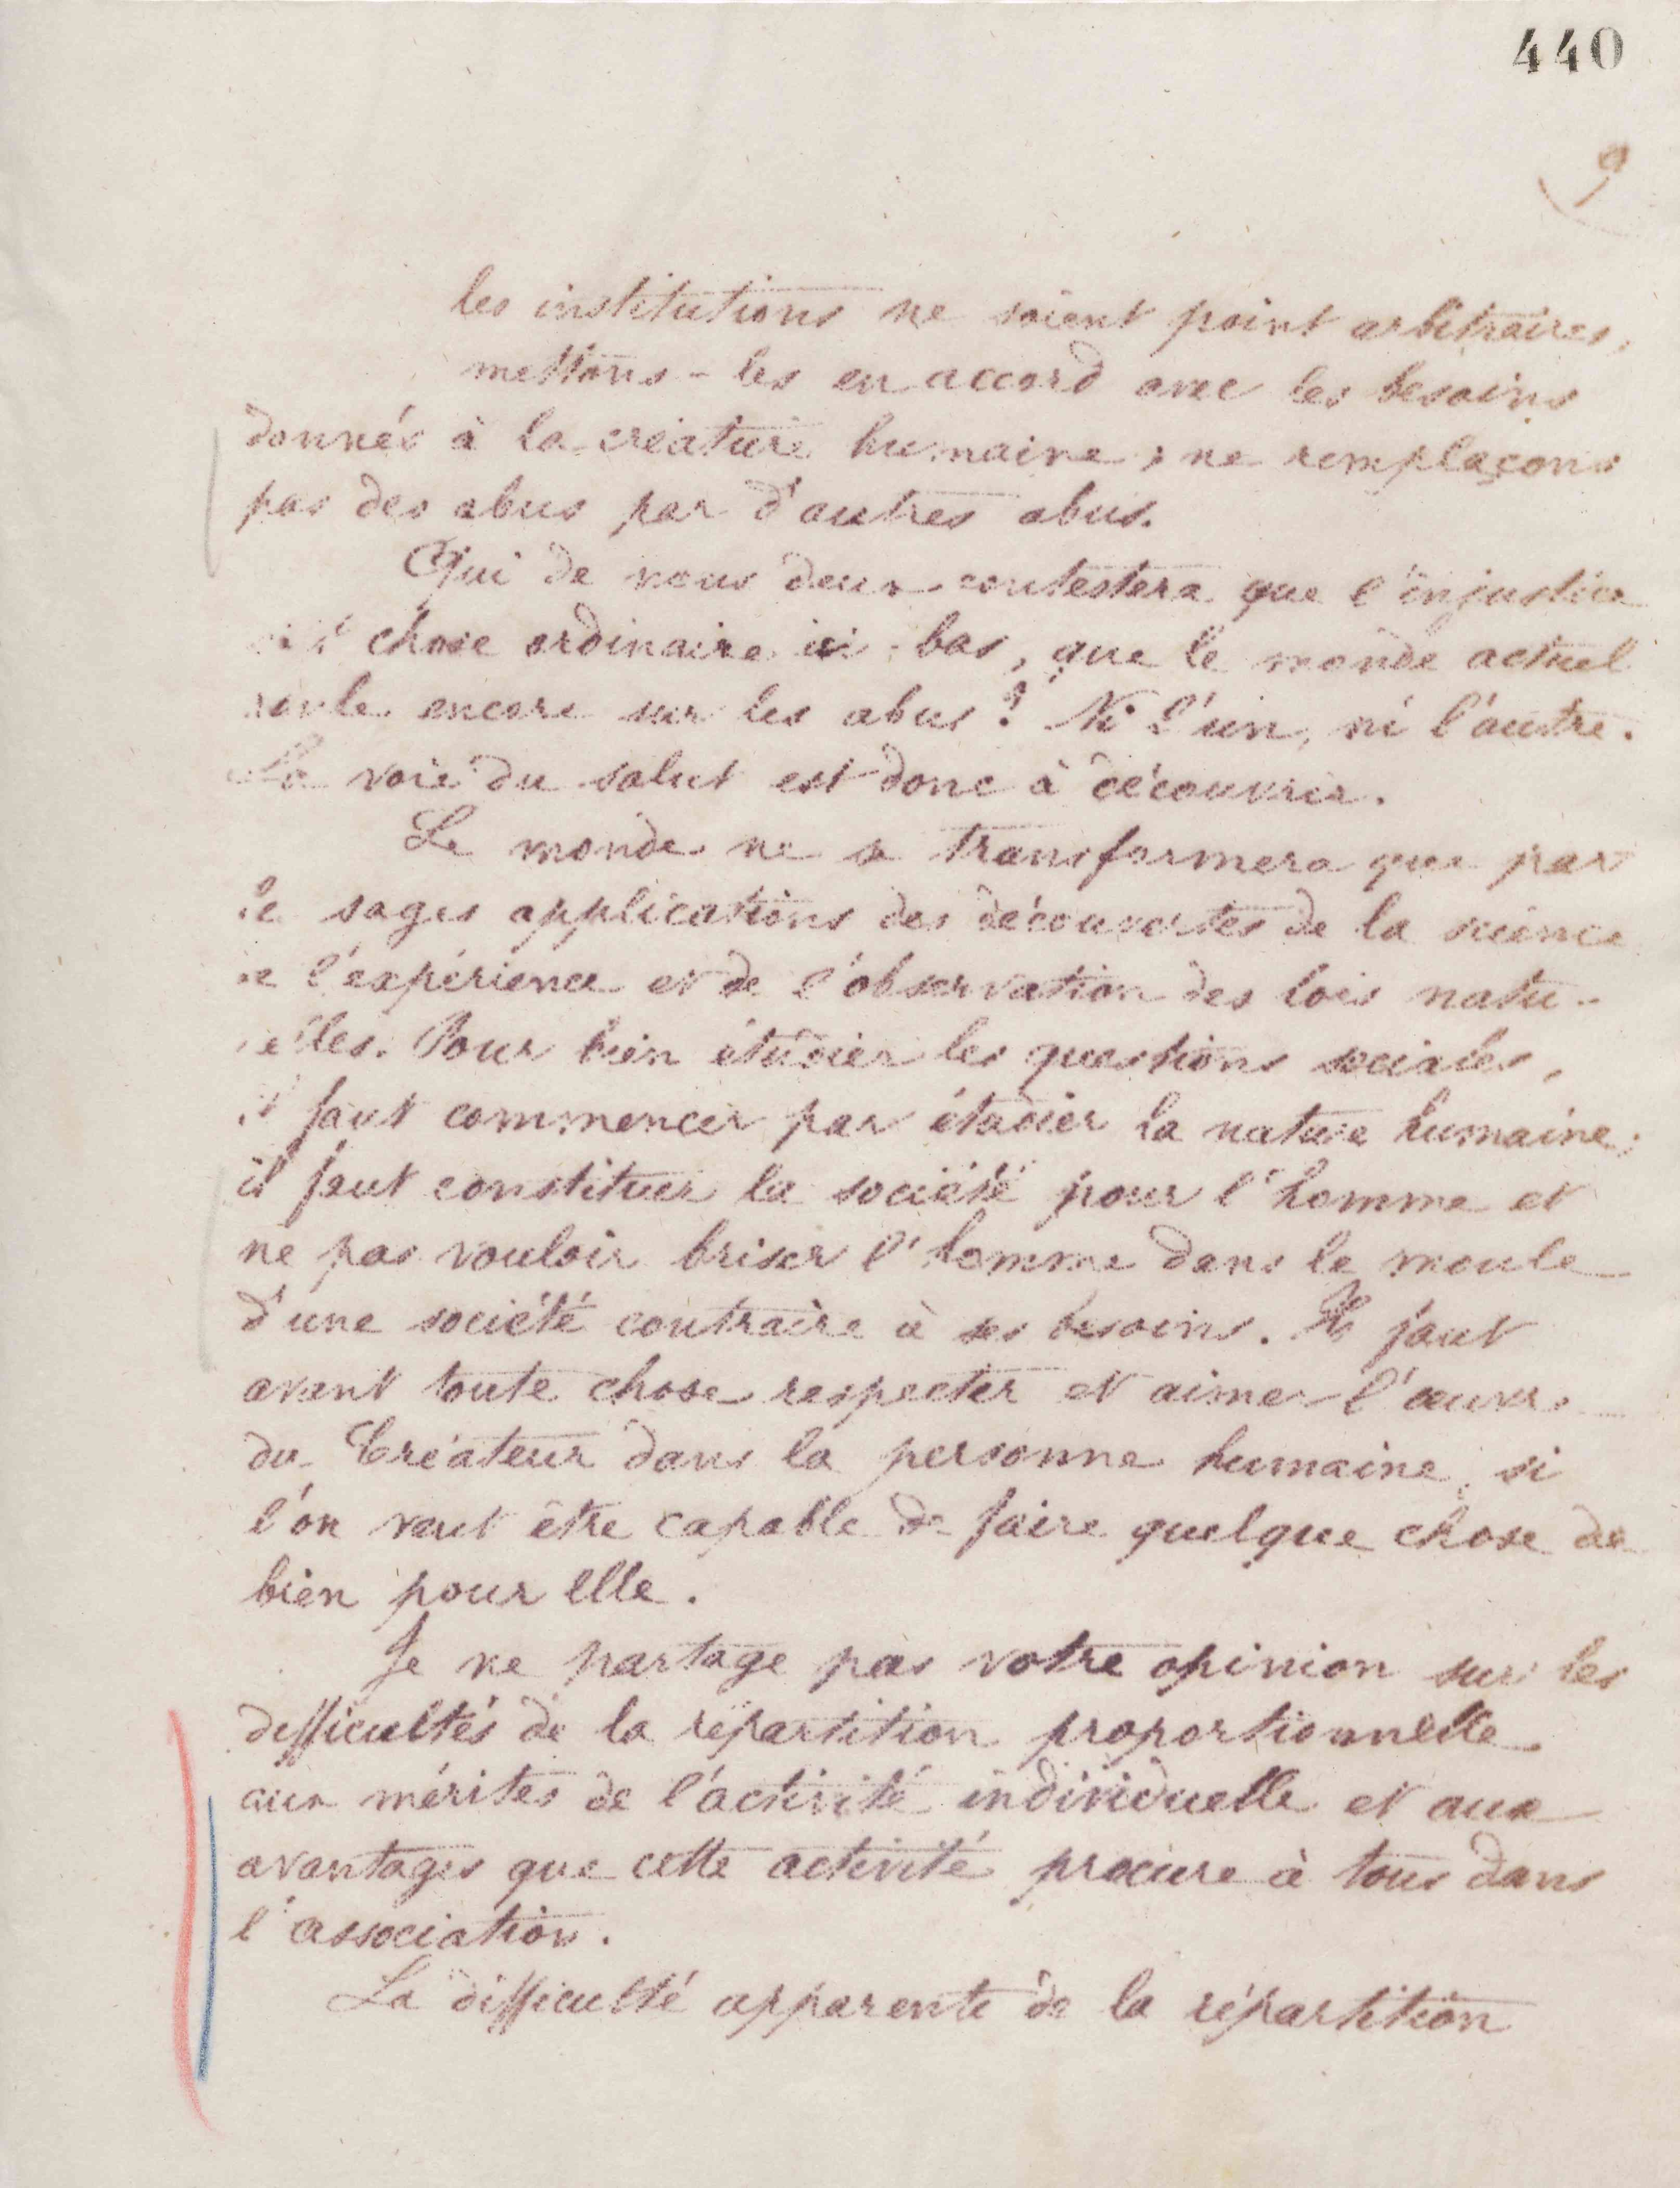 440
9
les institutions ne soient point arbitraires,
mettons-les en accord avec les besoins
donnés à la créature humaine ; ne remplaçons
pas des abus par d'autres abus.
Qui de nous deux contestera que l'injustice
est chose ordinaire ici-bas, que le monde actuel
roule encore sur les abus ? Ni l'un, ni l'autre.
La voie du salut est donc à découvrir.
Le monde ne se transformera que par
de sages applications des découvertes de la science
de l'expérience et de l'observation des lois natu-
relles. Pour bien étudier les questions sociales,
il faut commencer par étudier la nature humaine ;
il faut constituer la société pour l'homme et
ne pas vouloir briser l'homme dans le moule
d'une société contraire à ses besoins. Il faut
avant toute chose respecter et aimer l'œuvre
du Créateur dans la personne humaine, si
l'on veut être capable de faire quelque chose de
bien pour elle.
Je ne partage pas votre opinion sur les
difficultés de la répartition proportionnelle
aux mérites de l'activité individuelle et aux
avantages que cette activité procure à tous dans
l'association.
La difficulté apparente de la répartition